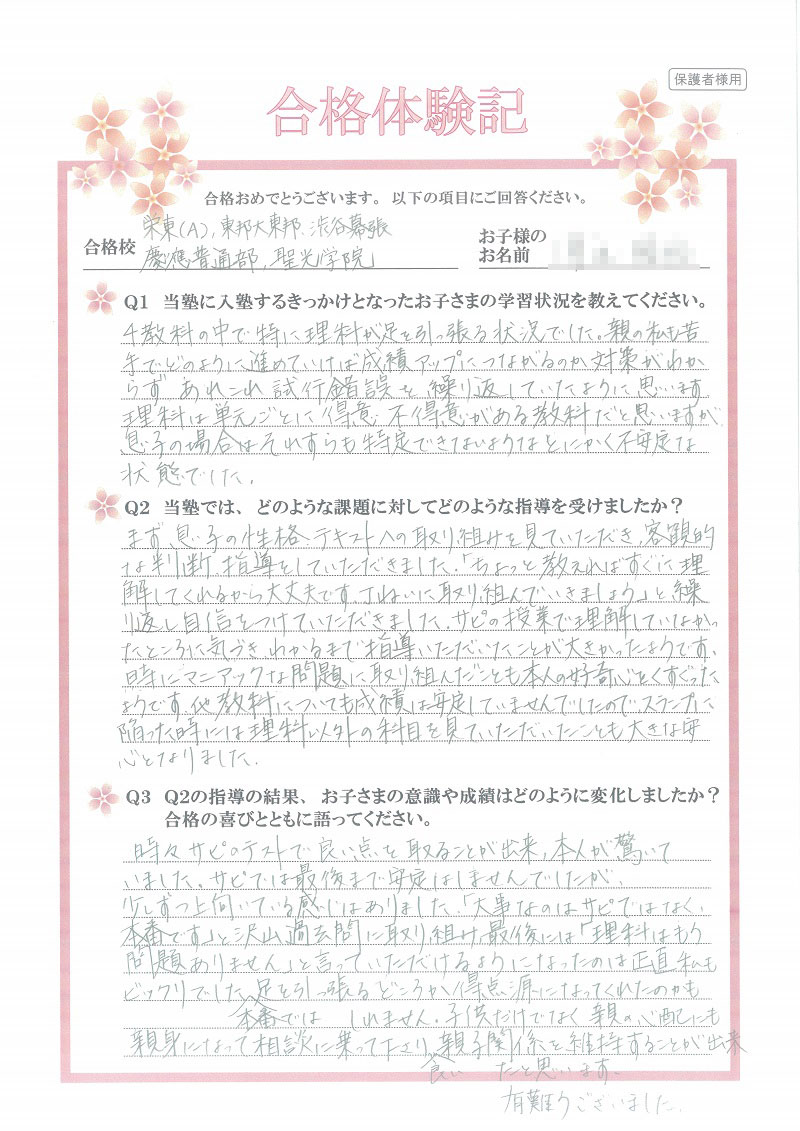 保護者様用
合格体験記
合格おめでとうございます。以下の項目にご回答ください。
合格校
栄東(A), 東邦大東邦, 渋谷幕張
慶應普通部, 聖光学院
お子様の
お名前
Q1 当塾に入塾するきっかけとなったお子さまの学習状況を教えてください。
4教科の中で特に理科が足を引っ張る状況でした。親の私も苦
手でどのように進めていけば成績アップにつながるのか対策がわか
らず あれこれ 試行錯誤を繰り返していたように思います。
理科は単元ごとに得意 不得意がある教科だと思いますが、
息子の場合はそれすらも特定できないようなとにかく不安定な
状態でした。
Q2 当塾では、どのような課題に対してどのような指導を受けましたか？
まず、息子の性格、テキストへの取り組みを見ていただき、客観的
な判断、指導をしていただきました。「ちょっと教えればすぐに理
解してくれるから大丈夫です。ていねいに取り組んでいきましょう」と繰
り返し自信をつけていただきました。サピの授業で理解していなかっ
たところに気づき わかるまで指導いただいたことが大きかったようです。
時にマニアックな問題に取り組んだことも本人の好奇心をくすぐった
ようです。他教科についても成績は安定していませんでしたのでスランプに
陥った時には理科以外の科目を見ていただいたことも大きな安
心となりました。
Q3 Q2の指導の結果、お子さまの意識や成績はどのように変化しましたか？
合格の喜びとともに語ってください。
時々サピのテストで良い点を取ることが出来、本人が驚いて
いました。サピでは最後まで安定はしませんでしたが、
少しずつ上向いている感じはありました。「大事なのはサピではなく、
本番です」と沢山過去問に取り組み、最後には「理科はもう
問題ありません」と言っていただけるようになったのは正直私も
ビックリでした。足を引っ張るどころか得点源になってくれたのかも
本番では しれません。子供だけでなく親の心配にも
親身になって相談に乗って下さり、親子関係を維持することが出来
良い たと思います。
有難うございました。